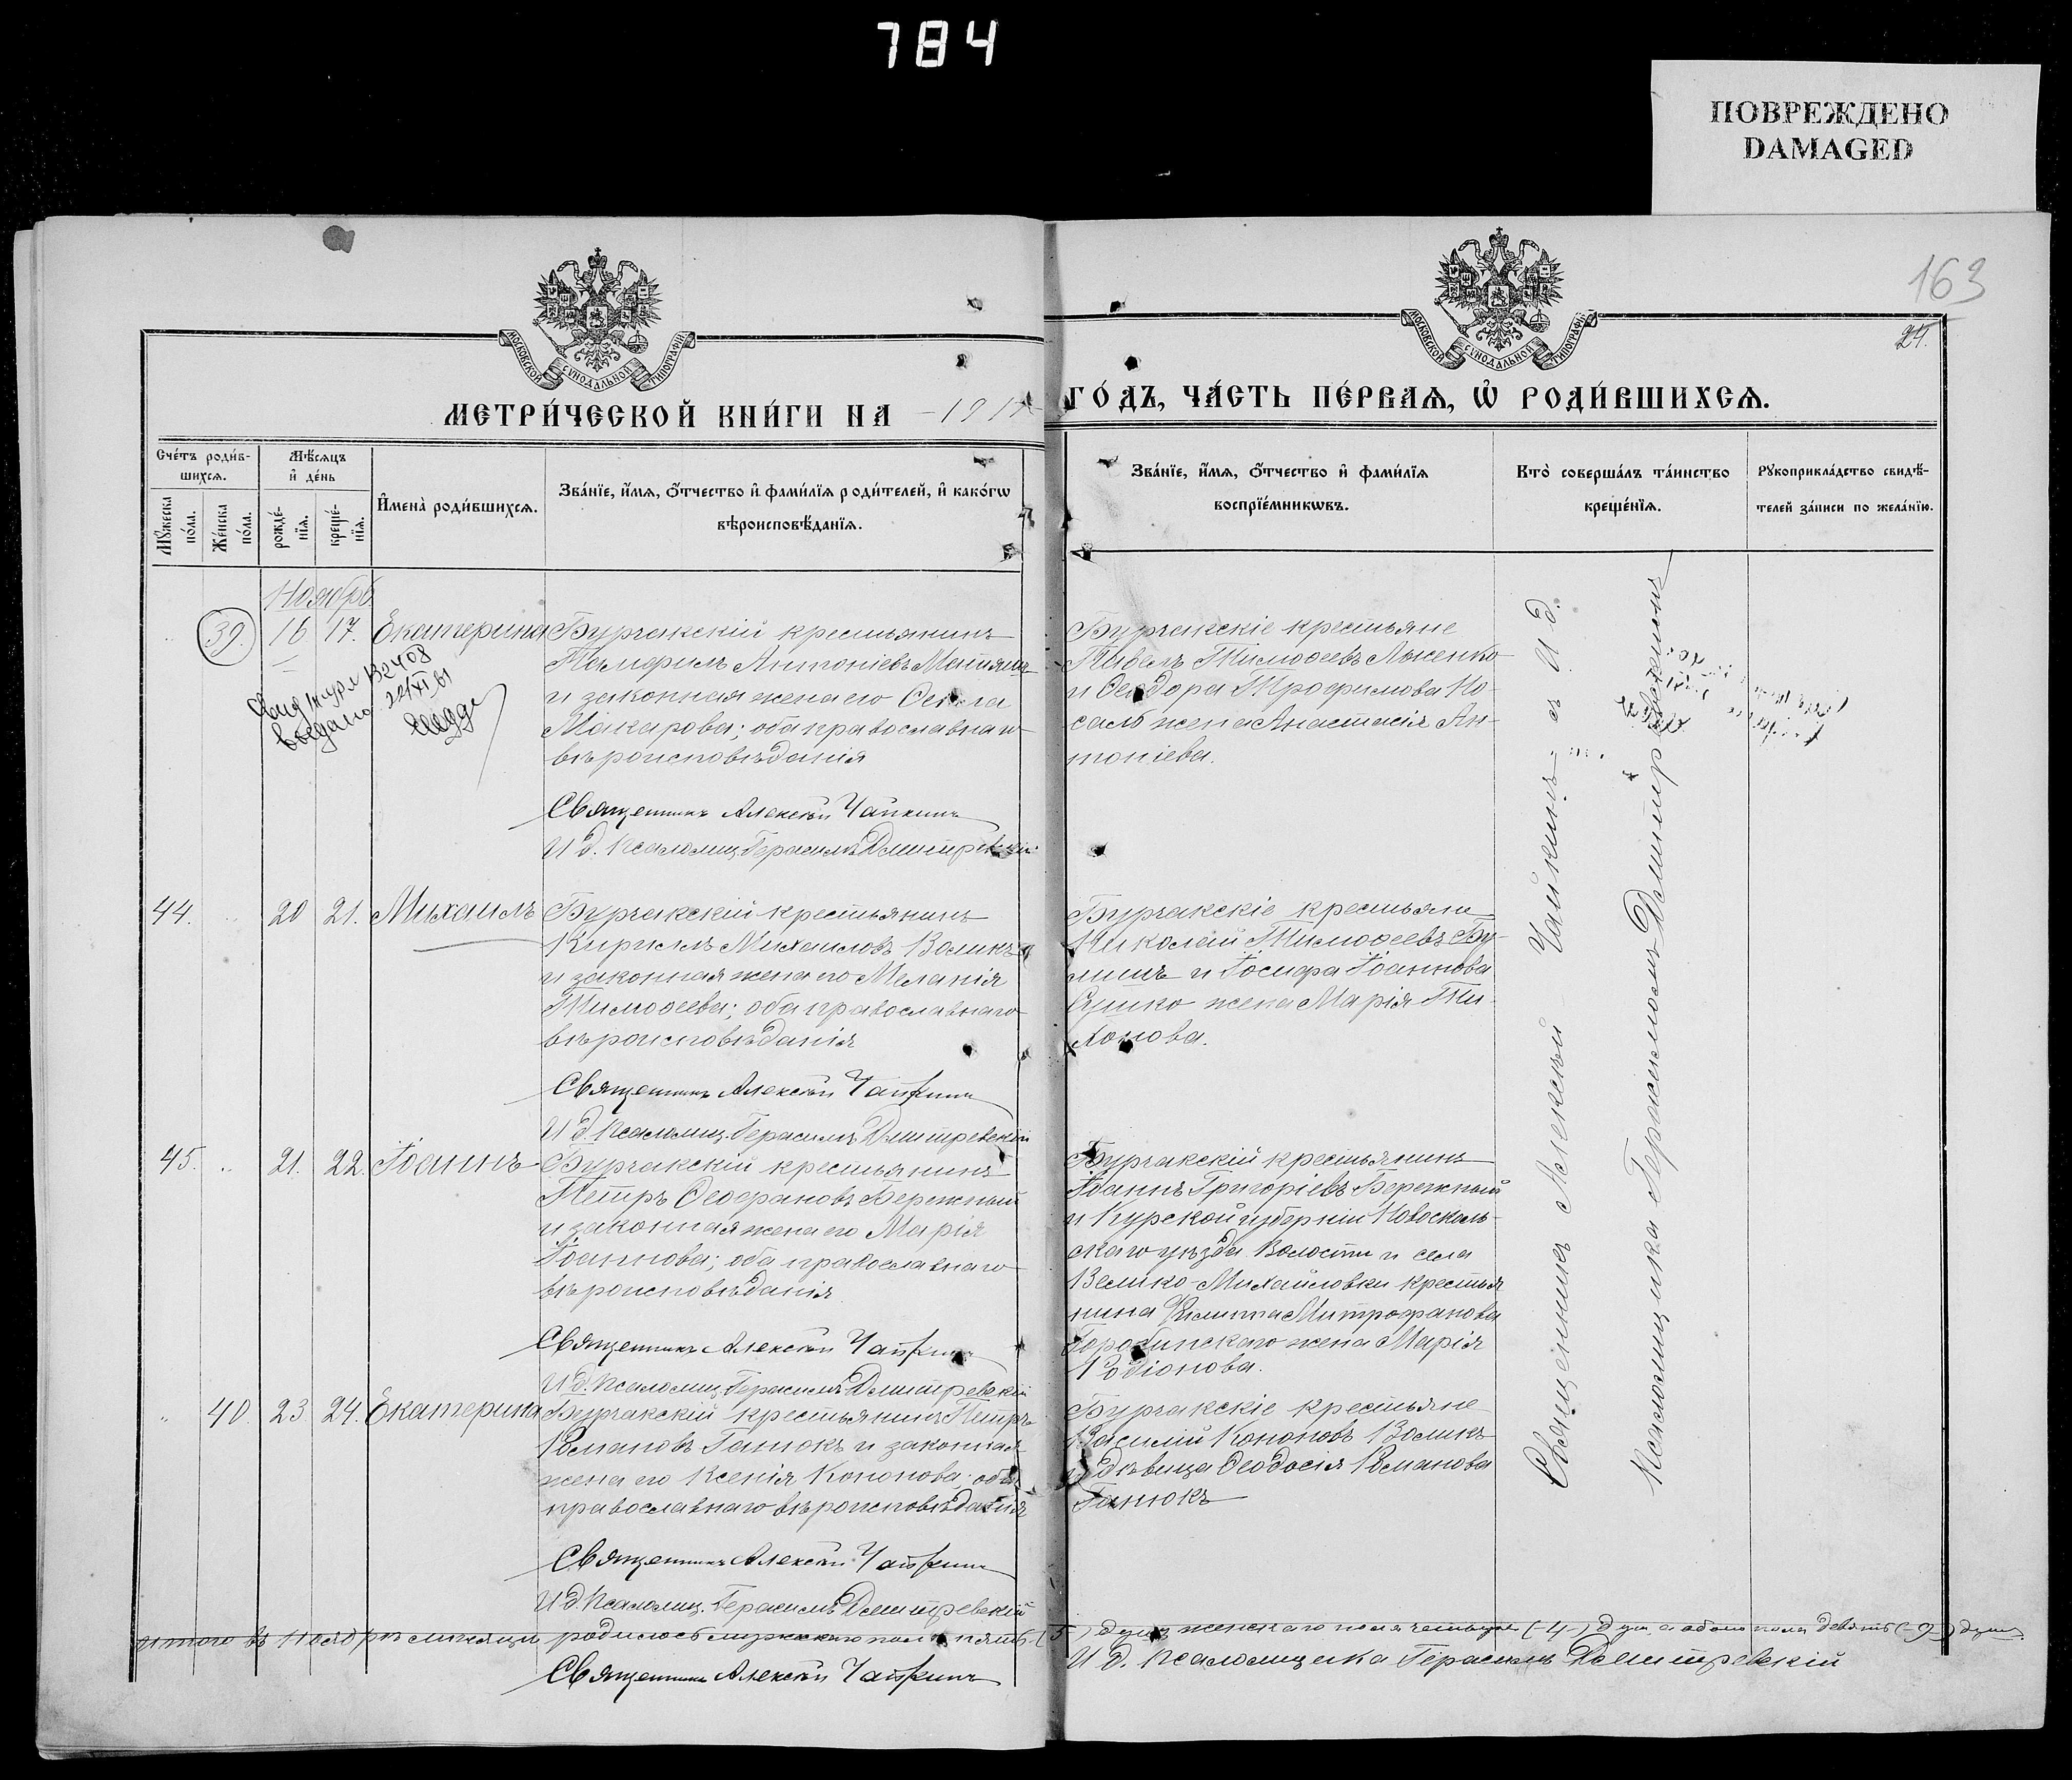 784
ПОВРЕЖДЕНО
DAMAGED
163
24.
МОСКОВСКОЙ СѴНОДАЛЬНОЙ ТИПОГРАФІИ
МОСКОВСКОЙ СѴНОДАЛЬНОЙ ТИПОГРАФІИ
МЕТРИ́ЧЕСКОЙ КНИ́ГИ НА
ГО́ДЪ, ЧА́СТЬ ПЕ́РВАѦ, Ѡ РОДИ́ВШИХСѦ.
Сче́тъ роди́в-
шихсѧ.
Мꙋ́жеска
по́ла.
Же́нска
по́ла.
Мѣ́сѧцъ
и де́нь
рожде́-
нїѧ.
креще́-
нїѧ.
И҆мена̀ роди́вшихсѧ.
Зва́нїе, и҆́мѧ, ѻ҆́тчество и҆ фами́лїѧ роди́телей, и҆ како́гѡ
вѣроисповѣ́данїѧ.
Зва́нїе, и҆́мѧ, ѻ҆́тчество и҆ фами́лїѧ
воспрїе́мникѡвъ.
Кто̀ соверша́лъ та́инство
креще́нїѧ.
Рꙋкоприкла́дство свидѣ́-
телей за́писи по жела́нїю.
Ноябрь
39. 16 17. Екатерина
Бурчакскій крестьянинъ
Памфилъ Антоніевъ
и законная жена его Ѳекла
Макарова; оба православнаго
вѣроисповѣданія
Священникъ Алексѣй Чайкинъ
И д. Псаломщ. Герасимъ Дмитревскій
Бурчакскіе крестьяне
Павелъ Тимоѳеевъ Лысенко
и Ѳеодора Трофимова Но-
саль жена Анастасія Ан-
тоніева.
выдано
44. 20 21. Михаилъ
Бурчакскій крестьянинъ
Кириллъ Михаиловъ Воликъ
и законная жена его Меланія
Тимоѳеева; оба православнаго
вѣроисповѣданія
Священникъ Алексѣй Чайкинъ
И д. Псаломщ. Герасимъ Дмитревскій
Бурчакскіе крестьяне
Николай Тимоѳеевъ
и Іосифа Іоаннова
жена Марія Ти-
хонова.
45. 21. 22. Іоаннъ
Бурчакскій крестьянинъ
Петръ Ѳеофановъ Бережный
и законная жена его Марія
Іоаннова; оба православнаго
вѣроисповѣданія
Священникъ Алексѣй Чайкинъ
И д. Псаломщ. Герасимъ Дмитревскій
Бурчакскій крестьянинъ
Іоаннъ Григоріевъ Бережный
и Курской губерніи Новосколь-
скаго уѣзда Волости и села
Велико-Михайловки крестья
нина Митрофанова
жена Марія
Родіонова.
40. 23 24. Екатерина
Бурчакскій крестьянинъ Петръ
Романовъ Ганюкъ и законная
жена его Ксенія Кононова; оба
православнаго вѣроисповѣданія
Священникъ Алексѣй Чайкинъ
И д. Псаломщ. Герасимъ Дмитревскій
Бурчакскіе крестьяне
Василій Кононовъ Воликъ
и дѣвица Ѳеодосія Романова
Ганюкъ
Священникъ Алексѣй Чайкинъ съ И. д.
Псаломщика Герасимомъ Дмитревскимъ
Итого въ Ноябрѣ мѣсяцѣ родилось мужескаго пола пять (5) душъ женскаго пола четыре (-4-) душ. а обоего пола девять (-9-) душъ.
Священникъ Алексѣй Чайкинъ
И д. Псаломщика Герасимъ Дмитревскій